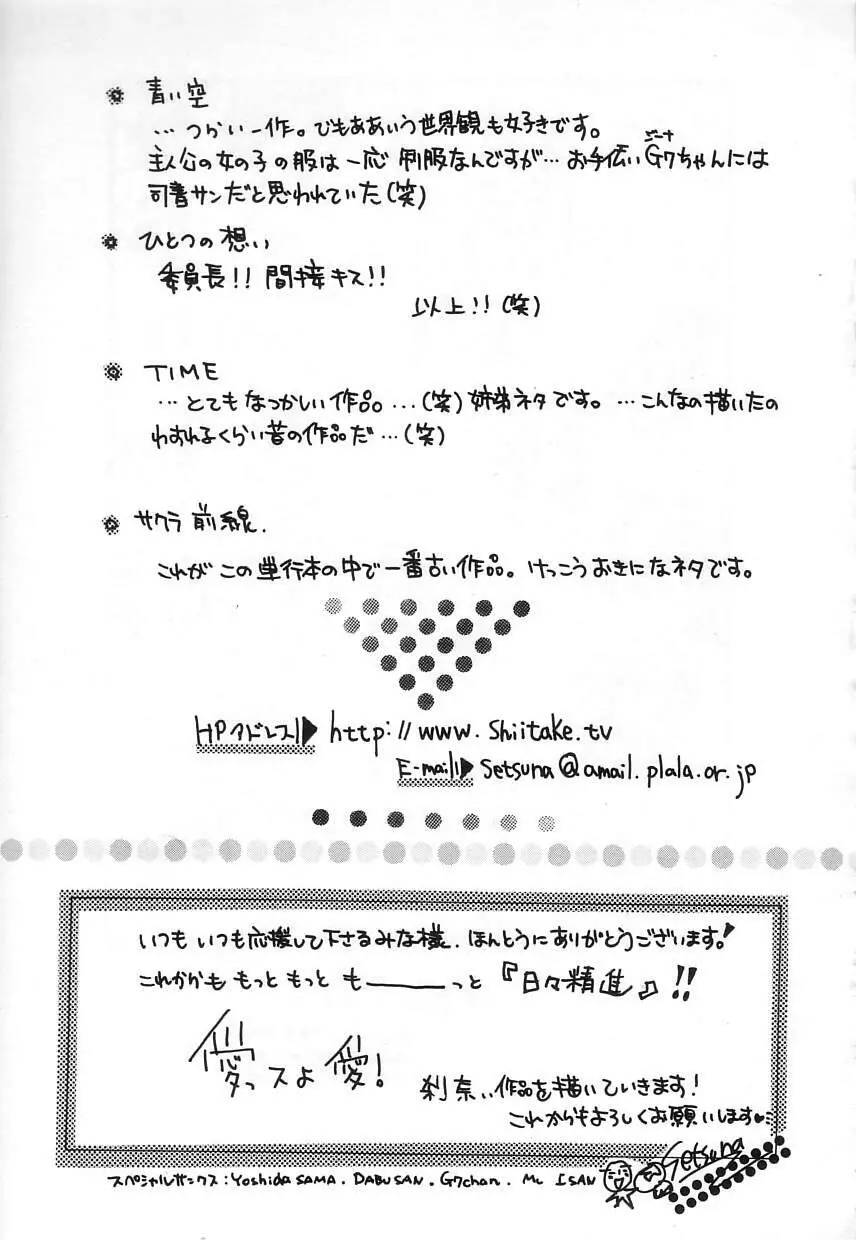 青い空
…つかい一作。でもああいう世界観も好きです。
主人公の女の子の服は一応制服なんですが…お手伝いG7ちゃんには
ジーナ
司書サンだと思われていた(笑)
ひとつの想い
委員長!! 間接キス!!
以上!!(笑)
TIME
…とてもなつかしい作品…(笑)姉弟ネタです。…こんなの描いたの
わすれるくらい昔の作品だ…(笑)
サクラ前線.
これがこの単行本の中で一番古い作品。けっこうおきになネタです。
HPアドレス▶ http://www.Shiitake.tv
E-mail▶ Setsuna@amail.plala.or.jp
いつもいつも応援して下さるみな様、ほんとうにありがとうございます!
これかかも もっと もっと も――っと『日々精進』!!
愛っスよ 愛!
刹奈、作品を描いていきます!
これからもよろしくお願いします♥
Setsuna
スペシャルサンクス:Yoshida SAMA. DABUSAN. G7chan. Mc ISAN